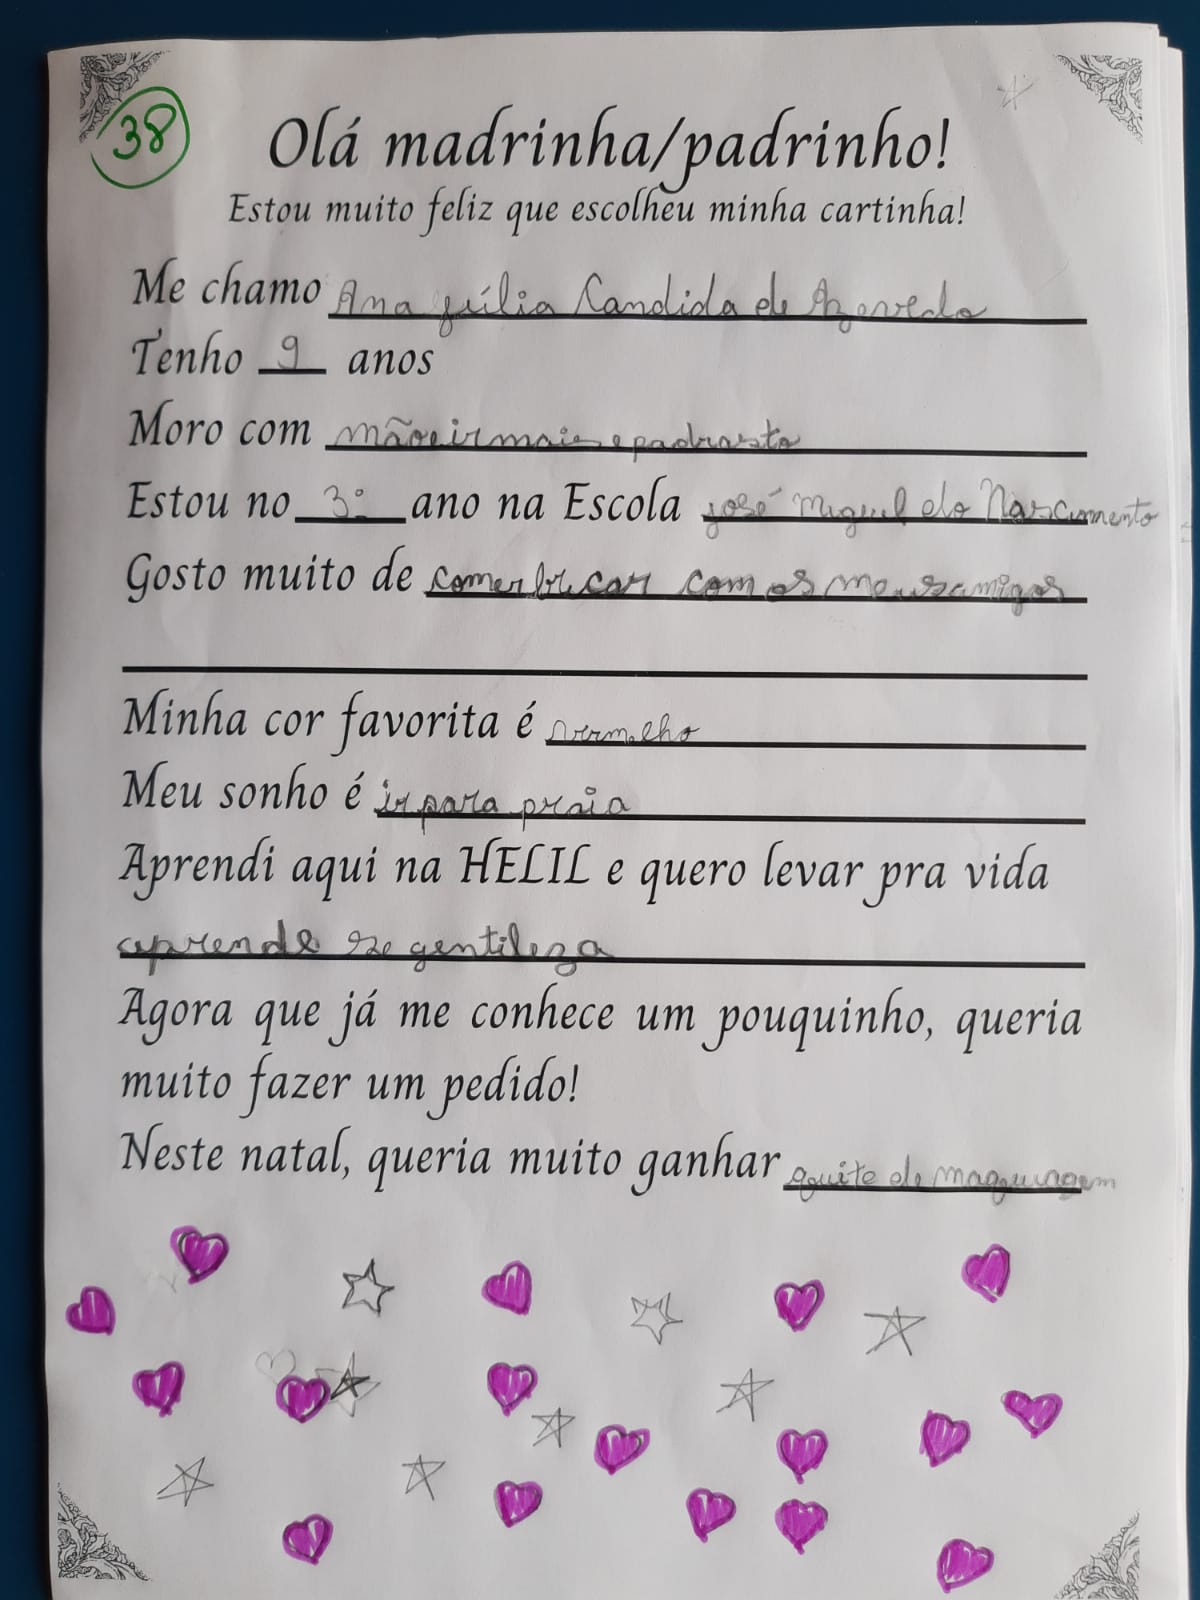 38
Olá madrinha/padrinho!
Estou muito feliz que escolheu minha cartinha!
Me chamo Ana Júlia Candida de Azevedo
Tenho 9 anos
Moro com mãoeirmais e padrasto
Estou no 3º ano na Escola josé Miguel do Nascimento
Gosto muito de comer bricar com os meus amigos
Minha cor favorita é vermelho
Meu sonho é ir para praia
Aprendi aqui na HELIL e quero levar pra vida
aprende se gentileza
Agora que já me conhece um pouquinho, queria
muito fazer um pedido!
Neste natal, queria muito ganhar quite de maquiagem